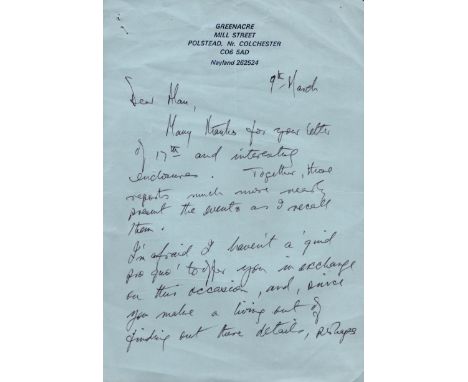 GREENACRE
MILL STREET
POLSTEAD, Nr. COLCHESTER
CO6 5AD
Nayland 262524
9th March
Dear Alan,
Many thanks for your letter
of 17th and interesting
enclosures. Together, these
reports much more nearly
present the events as I recall
them.
I'm afraid I haven't a 'quid
pro quo' to offer you in exchange
on this occasion, and, since
you make a living out of
finding out these details, perhaps